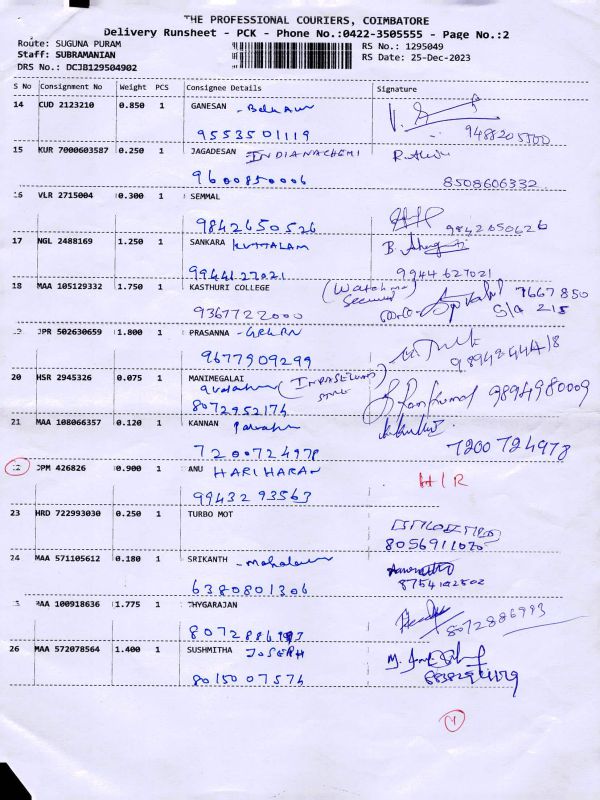 THE PROFESSIONAL COURIERS, COIMBATORE
Delivery Runsheet - PCK - Phone No.:0422-3505555 - Page No.:2
Route: SUGUNA PURAM
Staff: SUBRAMANIAN
DRS No.: DCJB129504902
RS No.: 1295049
RS Date: 25-Dec-2023
S No Consignment No Weight PCS Consignee Details Signature
14 CUD 2123210 0.850 1 GANESAN
9553501119 9488205500
15 KUR 7000603587 0.250 1 JAGADESAN INDIANACHEMI
9600850006 8508606332
16 VLR 2715004 0.300 1 SEMMAL
9842650526 9842650626
17 NGL 2488169 1.250 1 SANKARA KUTTALAM
9944127021 9944627021
18 MAA 105129332 1.750 1 KASTHURI COLLEGE
9367722000 7667850
215
19 JPR 502630659 1.800 1 PRASANNA
9677909299
20 HSR 2945326 0.075 1 MANIMEGALAI
8072952174 9894980009
21 MAA 108066357 0.120 1 KANNAN
7200724978 7200724978
22 JPM 426826 0.900 1 ANU HARIHARAN
9943293563 H/R
23 HRD 722993030 0.250 1 TURBO MOT
8056911020
24 MAA 571105612 0.180 1 SRIKANTH
6380801306
PAA 100918636 1.775 1 THYGARAJAN
8072886993
26 MAA 572078564 1.400 1 SUSHMITHA JOSEPH
8015007574